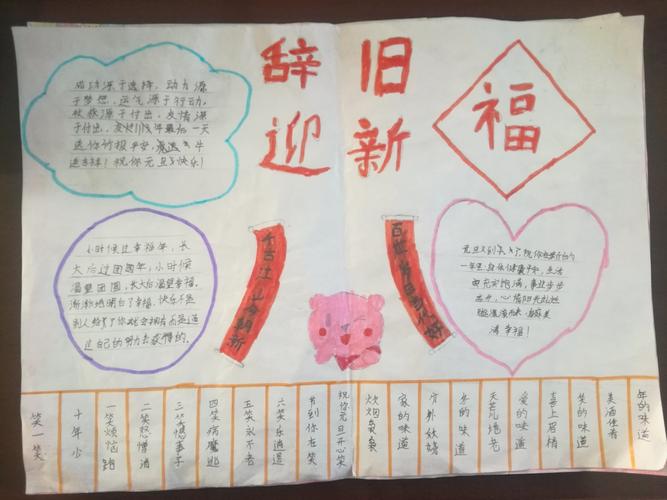 辞旧
迎新
福
成功源于选择,动力源
于梦想,运气源于行动,
收获源于付出,友情源
于付出,
送你竹报平安,
送吉祥!祝你元旦了快乐!
元旦又到来了,祝你在新的
一年里,身体健康平安,生活
更充实饱满,事业步步
高升,心情阳光灿烂
财源滚滚而来,家庭美
满幸福!
小时候过幸福年,长
大后过团圆年,小时候
温馨团圆,长大后温馨幸福,
渐渐地明白了幸福,快乐不是
别人给予了你就会拥有而是通
过自己的努力去获得的。
千古江山今朝新
百世岁月当代好
笑一笑
十年少
一笑烦恼跑
二笑怒憎消
三笑憾事子
四笑病魔逃
五笑永不老
六笑乐逍遥
时到你在笑
祝你元旦开心笑
炊烟袅袅
家的味道
窗外妖娆
冬的味道
天荒地老
爱的味道
喜上眉梢
笑的味道
美酒佳肴
年的味道